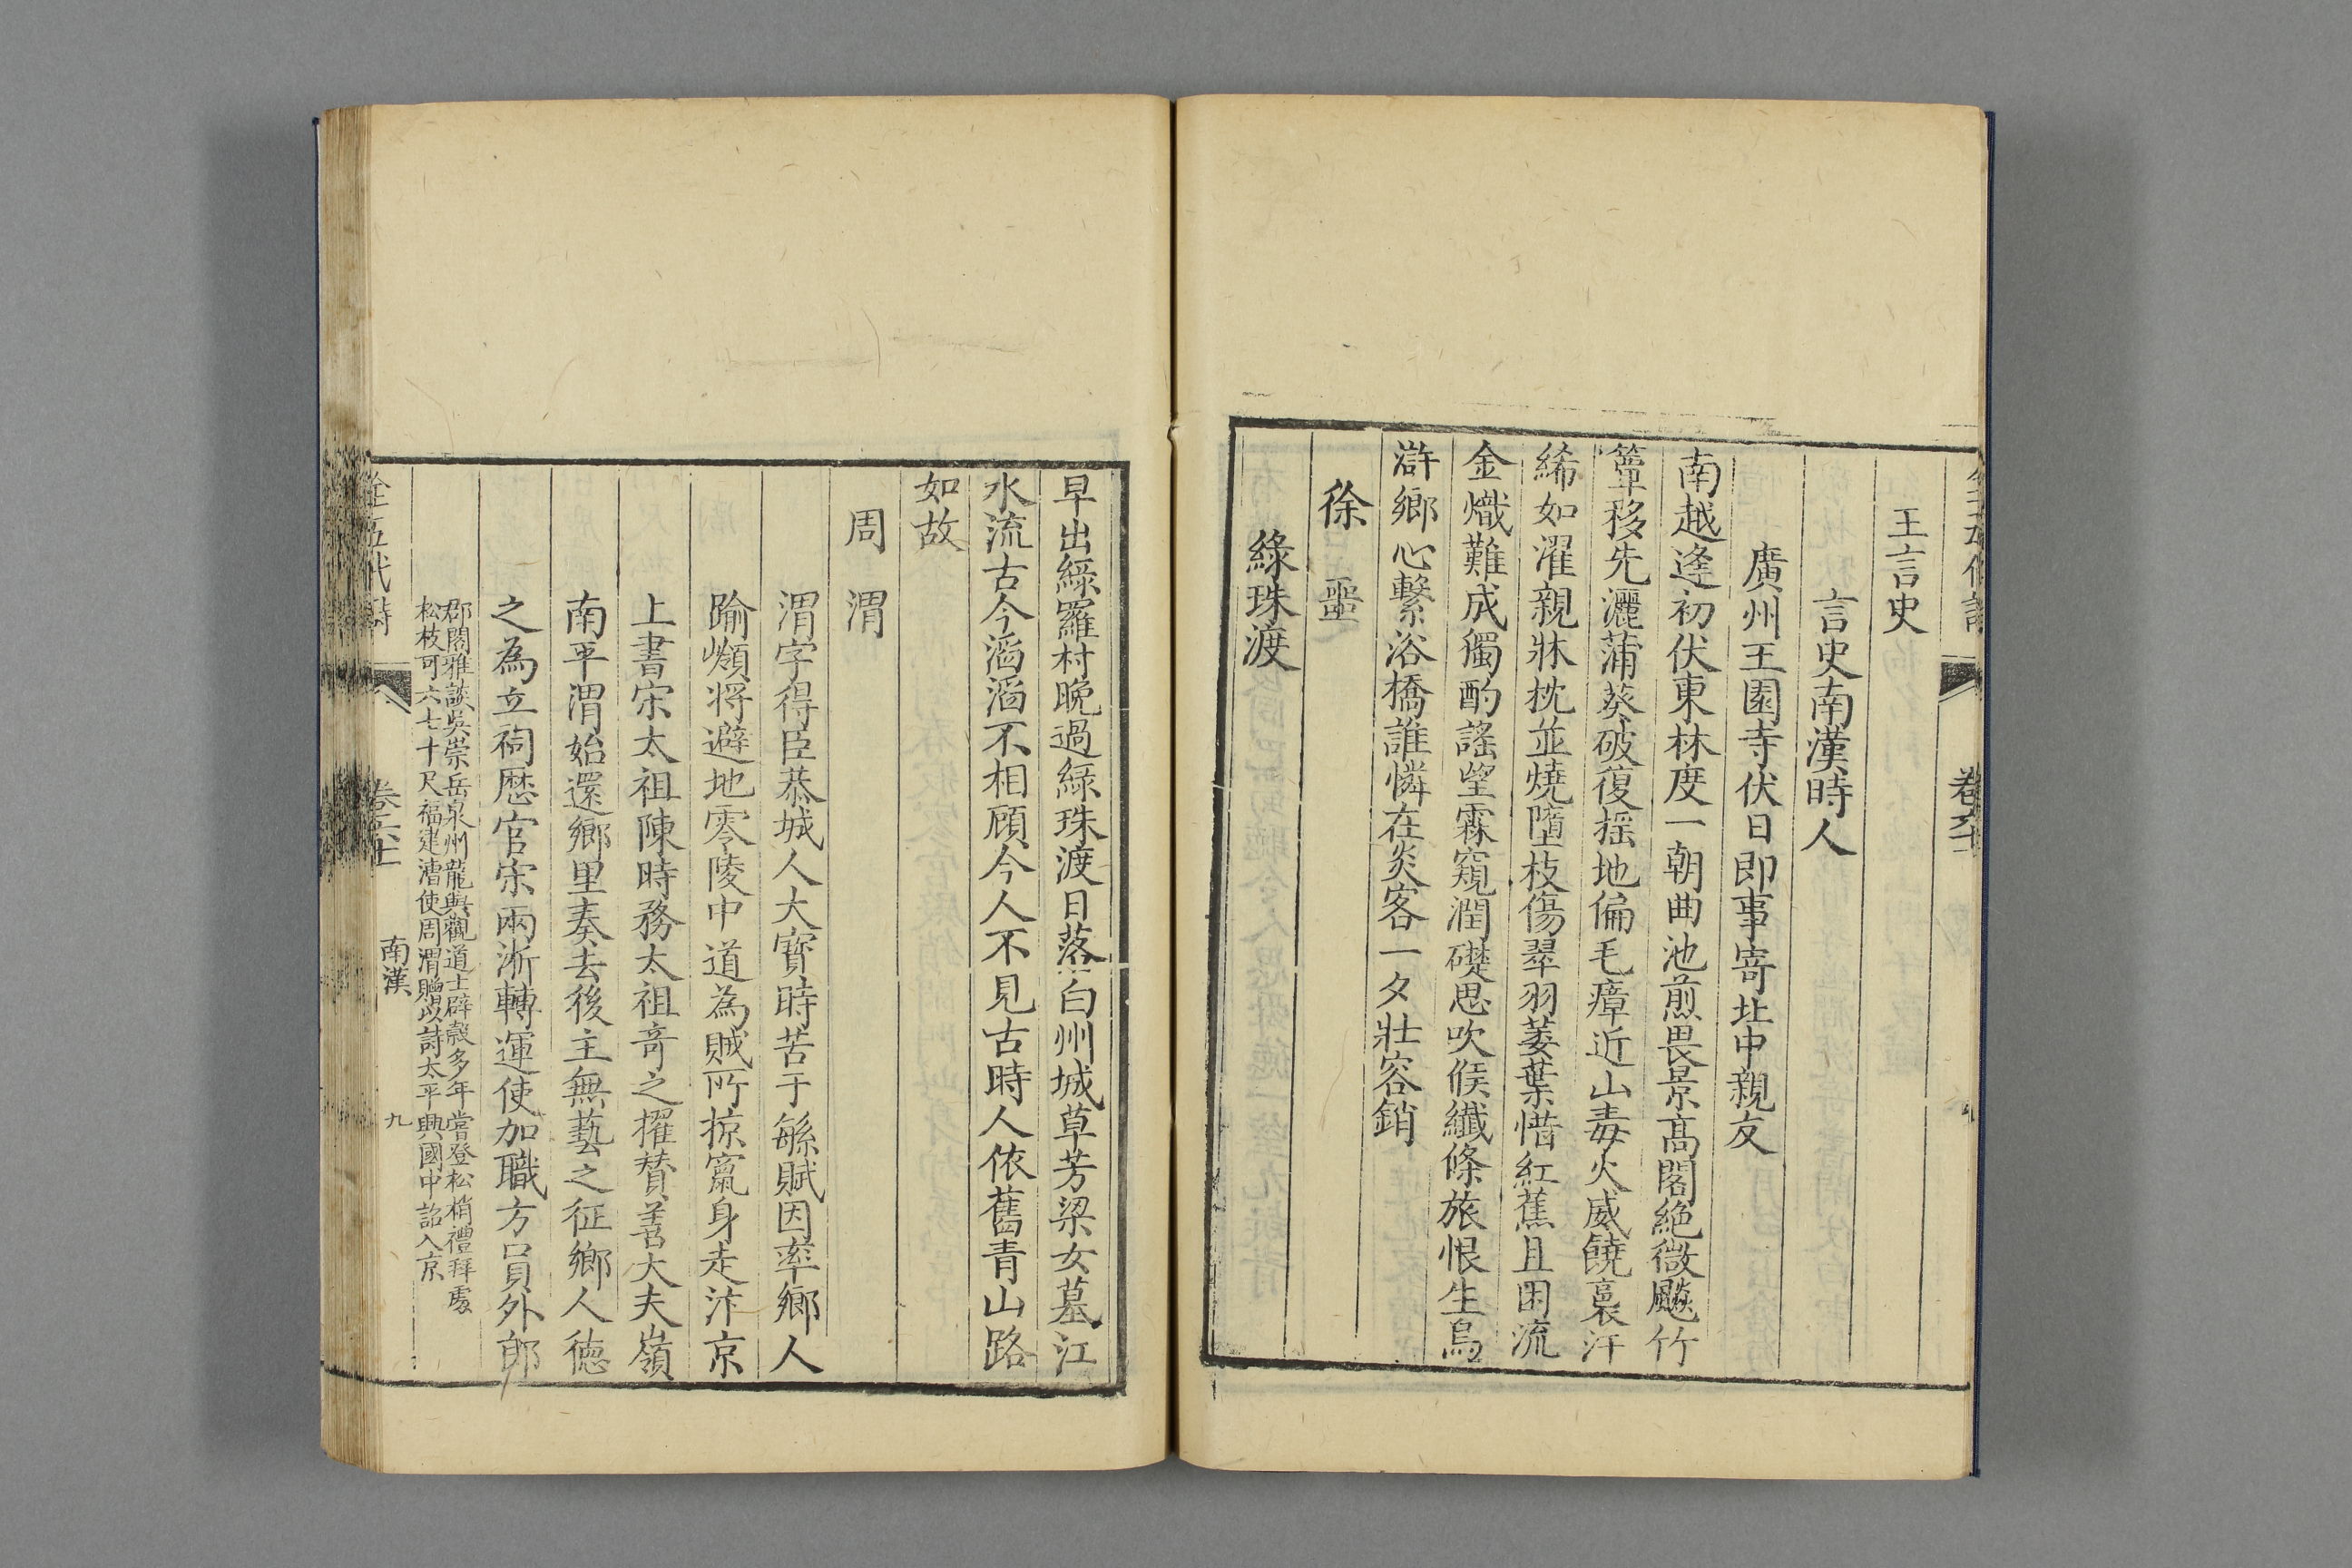 王言史
言史南漢時人
廣州王園寺伏日即事寄北中親友
南越逢初伏東林度一朝曲池煎畏景高閣絕微飈竹
簟移先灑蒲葵破復揺地偏毛瘴近山毒火威饒裛汗
絺如濯親牀枕並燒墮枝傷翠羽萎葉惜紅蕉且困流
金熾難成獨酌謠望霖窺潤礎思吹候纖條旅恨生烏
滸鄉心繫浴橋誰憐在炎客一夕壯容銷
徐噩
綠珠渡
早出綠羅村晚過綠珠渡日落白州城草芳梁女墓江
水流古今滔滔不相顧今人不見古時人依舊青山路
如故
周渭
渭字得臣恭城人大寶時苦于繇賦因率鄉人
踰嶺將避地零陵中道為賊所掠竄身走汴京
上書宋太祖陳時務太祖奇之擢贊善大夫嶺
南平渭始還鄉里奏去後主無藝之征鄉人德
之為立祠歷官宋兩浙轉運使加職方員外郎
郡閣雅談吳崇岳泉州龍興觀道士辟穀多年嘗登松梢禮拜處
松枝可六七十尺福建漕使周渭贈以詩太平興國中詔入京
全五代詩 卷六十一 南漢 九